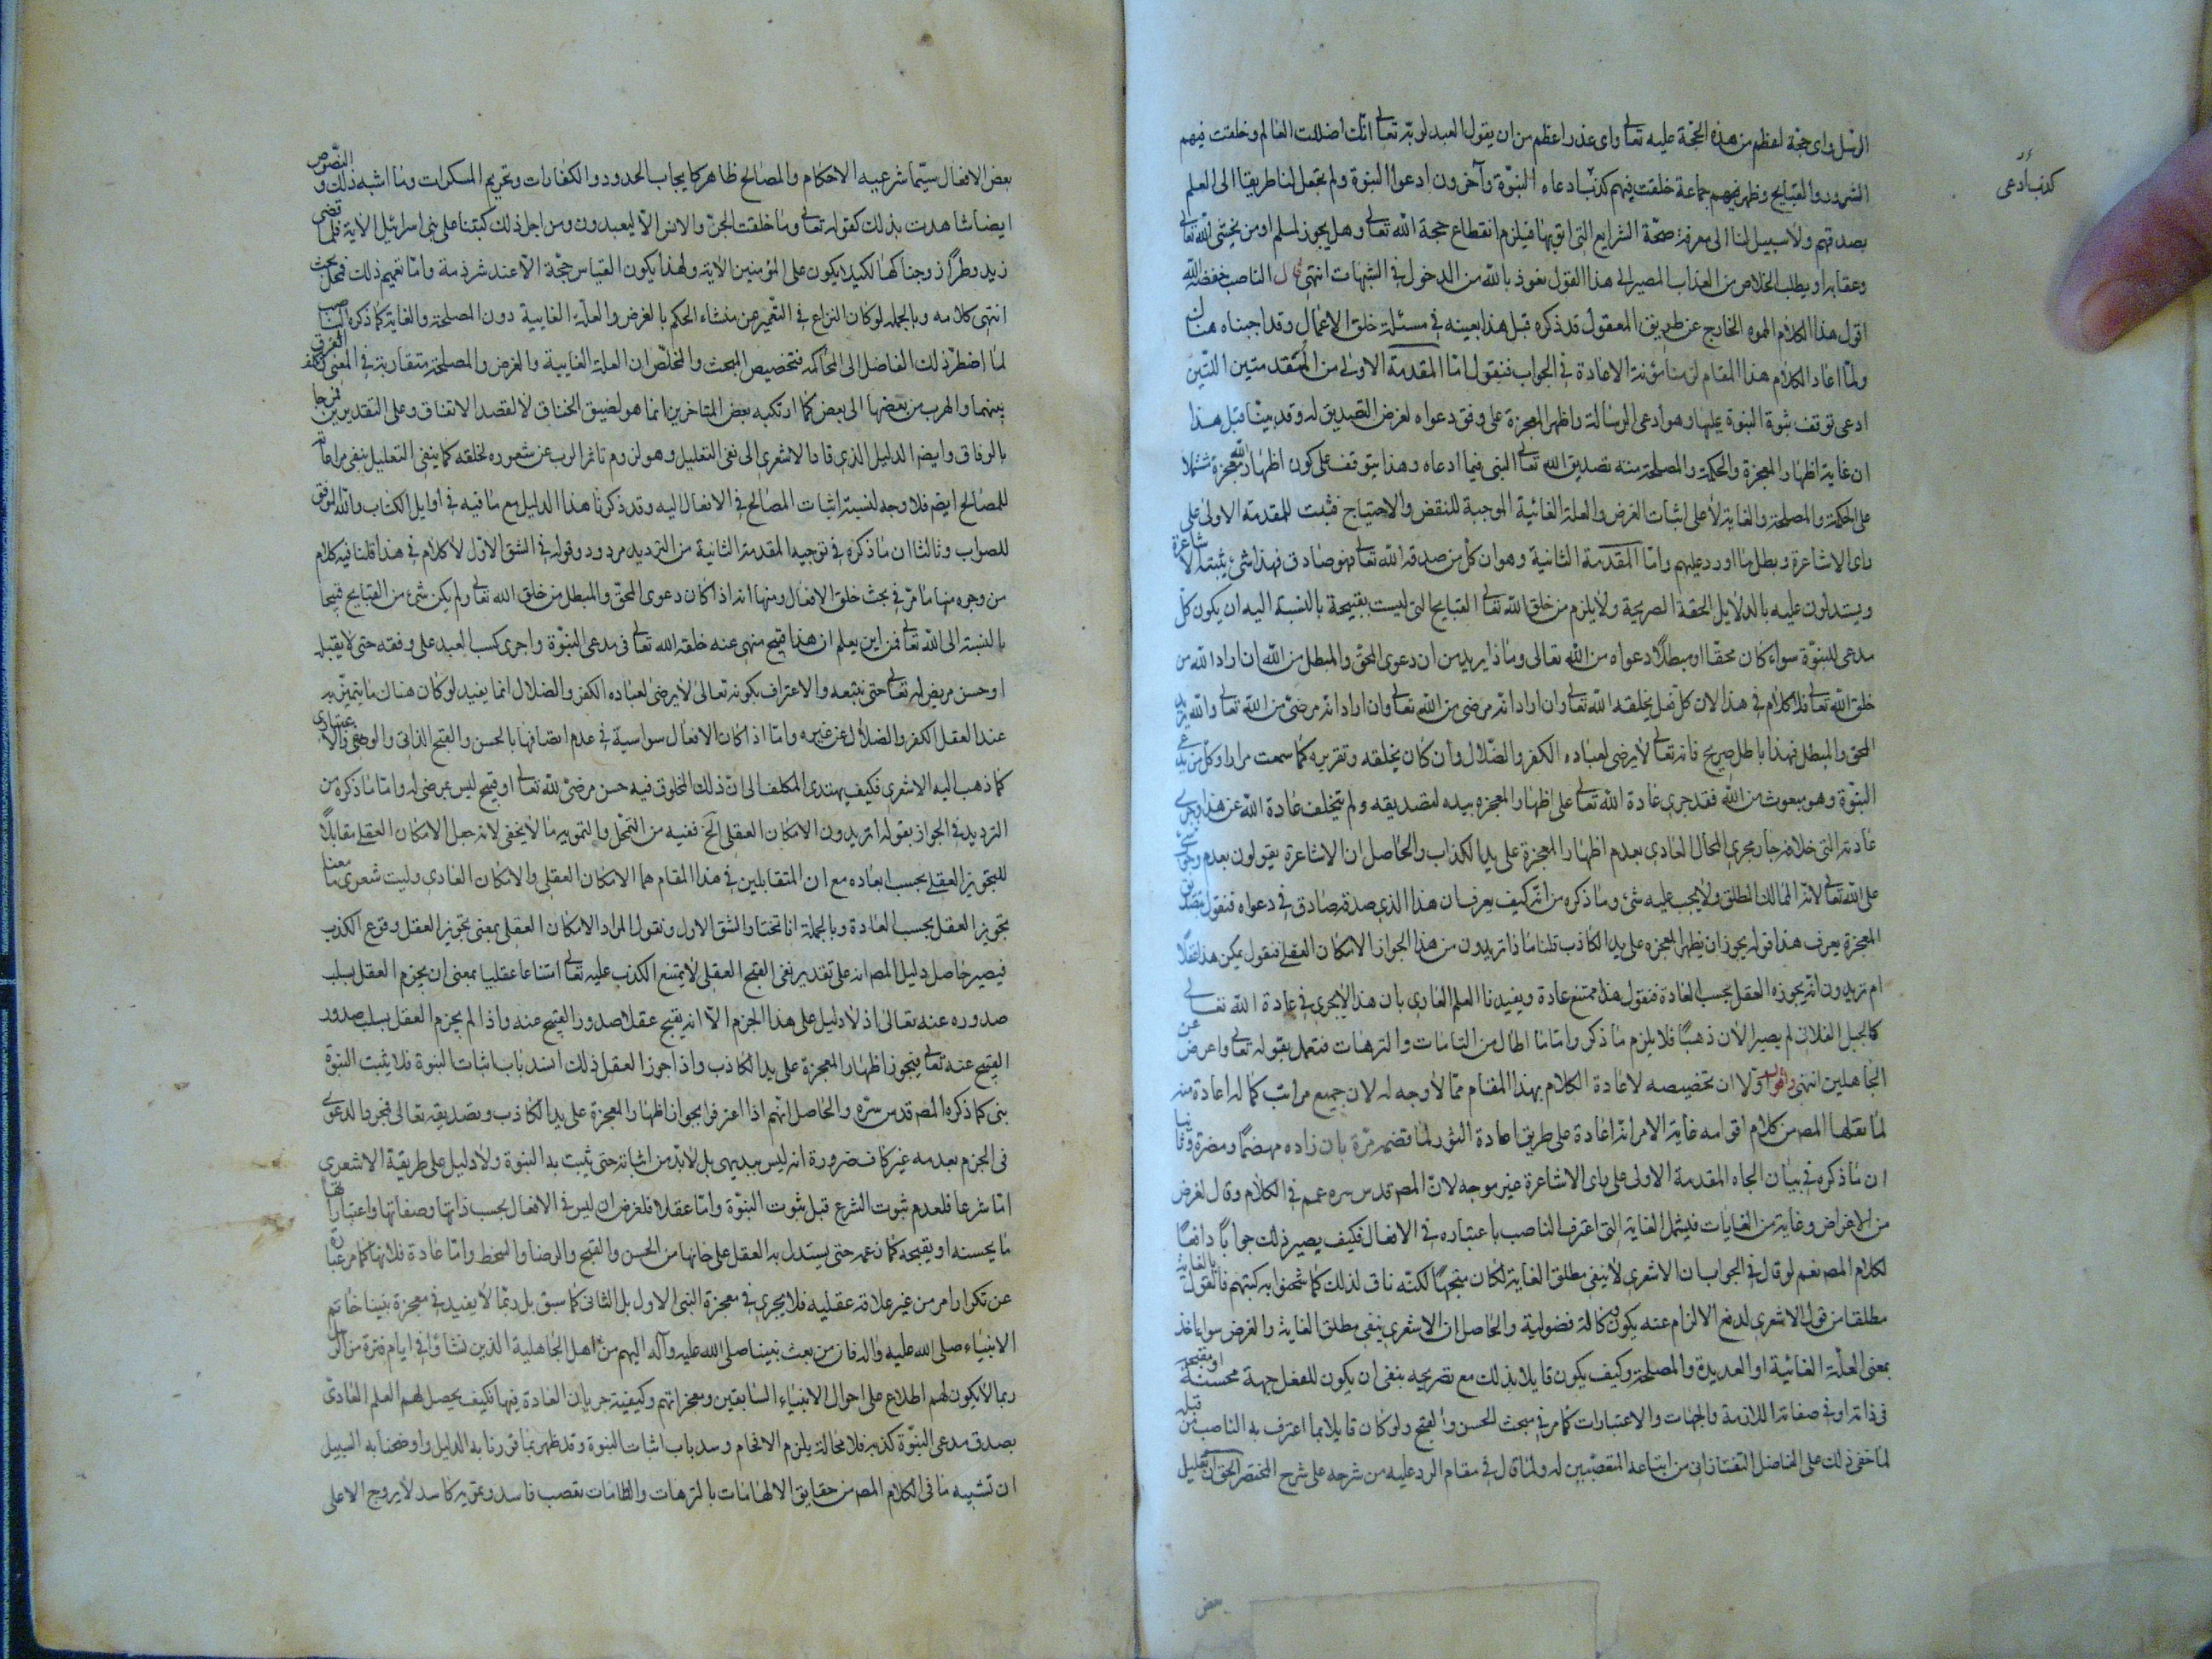 الرسل واى حجة اعظم من هذه الحجة عليه تعالى واى عذر اعظم من ان يقول العبد لربه تعالى انك اضللت العالم وخلقت فيهم
كذب أدعى
الشرور والقبايح وظهر فيهم جماعة خلقت فيهم كذب ادعاء النبوة وآخرون ادعوا النبوة ولم تجعل لنا طريقا الى العلم
بصدقهم ولا سبيل لنا الى معرفة صحة الشرايع التى اتوا بها فيلزم انقطاع حجة الله تعالى وهل يجوز لمسلم او من يخشى الله تعالى
وعقابه او يطلب الخلاص من العذاب المصير الى هذا القول نعوذ بالله من الدخول فى الشبهات انتهى قال الناصب خفضه الله
اقول هذا الكلام المموه الخارج عن طريق المعقول قد ذكره قبل هذا بعينه فى مسئلة خلق الاعمال وقد اجبناه هناك
ولما اعاد الكلام هذا المقام لزمنا مؤنة الاعادة فى الجواب فنقول اما المقدمة الاولى من المقدمتين اللتين
ادعى توقف ثبوت النبوة عليها وهو ادعى الرسالة واظهر المعجزة على وفق دعواه لغرض التصديق له وقد بينا قبل هذا
ان غاية اظهار المعجزة والحكمة والمصلحة منه تصديق الله تعالى النبى فيما ادعاه وهذا يتوقف على كون اظهار الله المعجزة مشتملا
على الحكمة والمصلحة والغاية لا على اثبات الغرض والعلة الغائية الموجبة للنقض والاحتياج فثبت المقدمة الاولى على
راى الاشاعرة وبطل ما اورد عليهم واما المقدمة الثانية وهو ان كل من صدقه الله تعالى فهو صادق فهذا شئ يثبته الاشاعرة
ويستدلون عليه بالدلايل الحقة الصريحة ولا يلزم من خلق الله تعالى القبايح التى ليست بقبيحة بالنسبة اليه ان يكون كل
مدعى للنبوة سواء كان محقا او مبطلا دعواه من الله تعالى وما ذا يريد من ان دعوى المحق والمبطل من الله ان اراد الله من
خلق الله تعالى فلا كلام فى هذا لان كل فعل يخلقه الله تعالى وان اراد انه مرضى من الله تعالى وان اراد انه مرضى من الله تعالى والله يريد
المحق والمبطل فهذا باطل صريح فانه تعالى لا يرضى لعباده الكفر والضلال وأن كان يخلقه وتقريره كما سمعت مرارا وكل من يدعى
النبوة وهو مبعوث من الله فقد جرى عادة الله تعالى على اظهار المعجزة بيده لتصديقه ولم تتخلف عادة الله عن هذا وجرى
عادته التى خلافها جار مجرى المحال العادى بعدم اظهار المعجزة على يد الكذاب والحاصل ان الاشاعرة يقولون بعدم وجوب شئ
على الله تعالى لانه المالك المطلق ولا يجب عليه شئ وما ذكره من انه كيف يعرف ان هذا الذى صدقه صادق فى دعواه فنقول بتصديق
المعجزة يعرف هذا قوله يجوز ان يظهر المعجزة على يد الكاذب قلنا ما ذا تريدون من هذا الجواز الامكان العقلى فنقول يمكن هذا عقلا
ام تريدون انه يجوزه العقل بحسب العادة فنقول هذا ممتنع عادة ويفيدنا العلم العادى بان هذا لا يجرى فى عادة الله تعالى
كالجبل الفلانى لم يصير الآن ذهبًا فلا يلزم ما ذكر واما ما اطال من الطامات والترهات فنعمل بقوله تعالى واعرض عن
الجاهلين انتهى واقول اولا ان تخصيصه لاعادة الكلام بهذا المقام مما لا وجه له لان جميع مراتب كلامه اعادة منه
لما نقلها المصـ من كلام اقوامه غاية الامر انه اعادة على طريق اعادة الثور لما قضمه مرة بان زاده مهضمًا ومضرة وثانيا
ان ما ذكره فى بيان اتجاه المقدمة الاولى على راى الاشاعرة غير موجه لان المصـ قدس سره عمم فى الكلام وقال لغرض
من الاغراض وغاية من الغايات فيشمل الغاية التى اعترف الناصب باعتباره فى الافعال فكيف يصير ذلك جوابًا دافعًا
لكلام المصـ نعم لو قال فى الجواب ان الاشعرى لا ينفى مطلق الغاية لكان متجهًا لكنه ناف لذلك كما شحنوا به كتبهم فالقول بالغاية
مطلقا من قول الاشعرى لدفع الالزام عنه يكون وكالة فضولية والحاصل ان الاشعرى ينفى مطلق الغاية والغرض سواء اخذ
بمعنى العلة الغائية او الفايدة والمصلحة وكيف يكون قايلا بذلك مع تصريحه بنفى ان يكون للفعل جهة محسنة او مقبحة
فى ذاته او فى صفاته اللازمة والجهات والاعتبارات كما مر فى مبحث الحسن والقبح ولو كان قايلا بما اعترف به الناصب من قبله
لما خفى ذلك على الفاضل التفتازانى من اتباعه المتعصبين له ولما قال فى مقام الرد عليه من شرحه على شرح المختصر الحق ان تعليل
بعض
بعض الافعال سيما شرعية الاحكام والمصالح ظاهر كايجاب الحدود والكفارات وتحريم المسكرات وما اشبه ذلك والنصوص
ايضا شاهدت بذلك كقوله تعالى وما خلقت الجن والانس الا ليعبدون ومن اجل ذلك كتبنا على بنى اسرائيل الآية فلما قضى
زيد وطرًا زوجناكها لكيلا يكون على المؤمنين الآية ولهذا يكون القياس حجة الا عند شرذمة واما تعميم ذلك فمحل بحث
انتهى كلامه وبالجملة لو كان النزاع فى التعبير عن منشاء الحكم بالغرض والعلة الغايية دون المصلحة والغاية كما ذكره الناصب
لما اضطر ذلك الفاضل الى المحاكمة فتخصيص المبحث والتخلص ان العلة الغايية والغرض والمصلحة متقاربة فى المعنى وتكلف الفرق
بينهما والهرب من بعضها الى بعض كما ارتكبه بعض المتاخرين انما هو لضيق الخناق لا لقصد الاتفاق وعلى التقديرين فمرحبا
بالوفاق وايضا الدليل الذى قاد الاشعرى الى نفى التعليل وهو لزوم تاثر الرب عن شعوره لخلقه كما ينفى التعليل ينفى مراعاته
للمصالح ايضـ فلا وجه لنسبة اثبات المصالح فى الافعال اليه وقد ذكرنا هذا الدليل مع ما فيه فى اوايل الكتاب والله الموفق
للصواب وثالثا ان ما ذكره فى توجيه المقدمة الثانية من الترديد مردود وقوله فى الشق الاول لا كلام فى هذا قلنا فيه كلام
من وجوه منها ما مر فى بحث خلق الافعال ومنها انه اذا كان دعوى المحق والمبطل من خلق الله تعالى ولم يكن شئ من القبايح قبيحا
بالنسبة الى الله تعالى فمن اين يعلم ان هذا قبيح منهى عنه خلقه الله تعالى فى مدعى النبوة واجرى كسب العبد على وفقه حتى لا يقبله
او حسن مرضى له تعالى حتى نتبعه والاعتراف بكونه تعالى لا يرضى لعباده الكفر والضلال انما يفيد لو كان هناك ما يتميز به
عند العقل الكفر والضلال عن غيره واما اذا كان الافعال سواسية فى عدم اتصافها بالحسن والقبح الذاتى والوصفى والاعتبارى
كما ذهب اليه الاشعرى فكيف يهتدى المكلف الى ان ذلك المخلوق فيه حسن مرضى لله تعالى او قبيح ليس بمرضى له واما ما ذكره من
الترديد فى الجواز بقوله اتريدون الامكان العقلى الخ ففيه من التمحل والتمويه ما لا يخفى لانه جعل الامكان العقلى مقابلا
للتجويز العقلى بحسب العاده مع ان المتقابلين فى هذا المقام هما الامكان العقلى والامكان العادى وليت شعرى ما معنى
تجويز العقل بحسب العادة وبالجملة انا نختار الشق الاول ونقول المراد الامكان العقلى بمعنى تجويز العقل وقوع الكذب
فيصير حاصل دليل المصـ انه على تقدير نفى القبح العقلى لا يمتنع الكذب عليه تعالى امتناعا عقليا بمعنى ان يجزم العقل بسلب
صدوره عنه تعالى اذ لا دليل على هذا الجزم الا انه يقبح عقلا صدور القبيح عنه واذا لم يجزم العقل بسلب صدور
القبيح عنه تعالى فيجوز اظهار المعجزة على يد الكاذب واذا جوز العقل ذلك انسد باب اثبات النبوة فلا يثبت النبوة
نبى كما ذكره المصـ قدس سره والحاصل انهم اذا اعترفوا بجواز اظهار المعجزة على يد الكاذب وتصديقه تعالى فمجرد الدعوى
فى الجزم بعدمه غير كاف ضرورة انه ليس ببديهى بل لا بد من اثباته حتى يثبت به النبوة ولا دليل على طريقة الاشعرى
اما شرعا فلعدم ثبوت الشرع قبل ثبوت النبوة واما عقلا فلفرض ان ليس فى الافعال بحسب ذاتها وصفاتها واعتباراتها
ما يحسنه او يقبحه كما زعمه حتى يستدل به العقل على حالها من الحسن والقبح والرضا والسخط واما عادة فلانها كما مر عبارة
عن تكرار امر من غير علاقة عقلية فلا يجرى فى معجزة النبى الاول بل الثانى كما سبق بل ربما لا يفيد فى معجزة نبينا خاتم
الانبياء صلى الله عليه واله فان من بعث نبينا صلى الله عليه وآله اليهم من اهل الجاهلية الذين نشاؤا فى ايام فترة من الرسل
ربما لا يكون لهم اطلاع على احوال الانبياء السابقين ومعجزاتهم وكيفية جريان العادة فيها فكيف يحصل لهم العلم العادى
بصدق مدعى النبوة كذبه فلا محالة يلزم الافحام وسد باب اثبات النبوة وقد ظهر بما قررنا به الدليل واوضحنا به السبيل
ان تشبيه ما فى الكلام المصـ من حقايق الالهامات بالترهات والطامات تعصب فاسد وتمويه كاسد لا يروج الا على